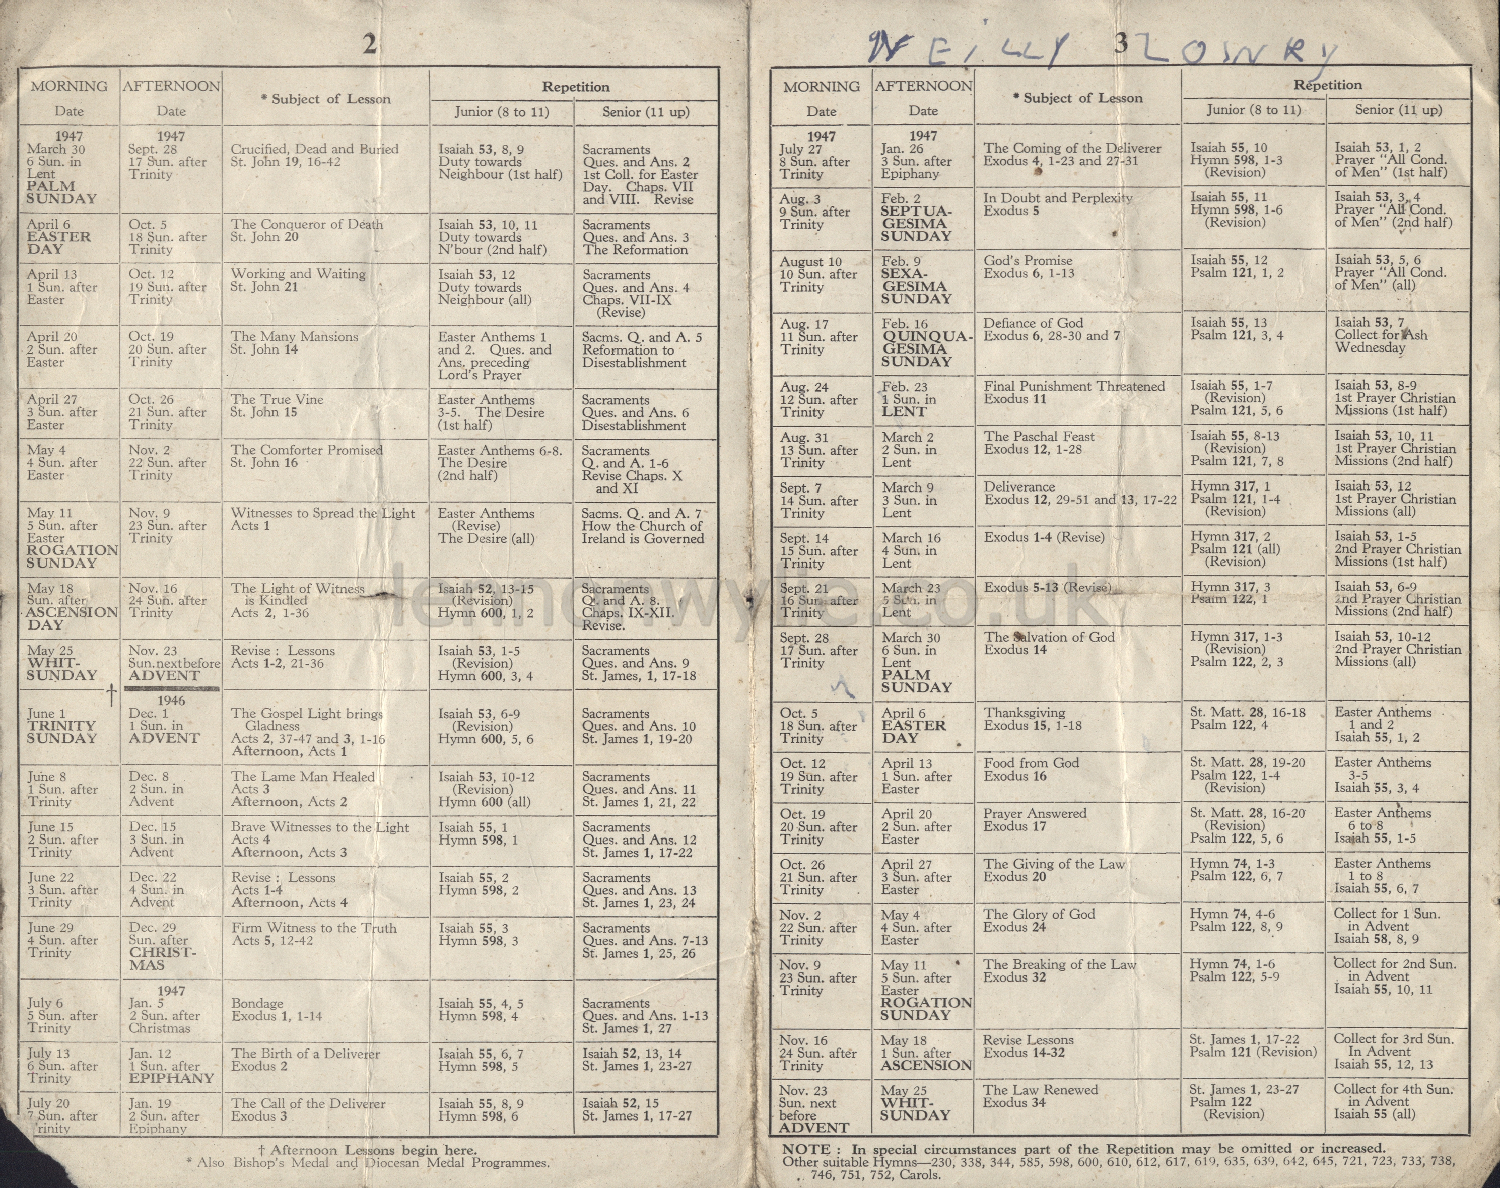 2
MORNING AFTERNOON * Subject of Lesson Repetition
Date Date Junior (8 to 11) Senior (11 up)
1947 1947
March 30 Sept. 28 Crucified, Dead and Buried Isaiah 53, 8, 9 Sacraments
6 Sun. in 17 Sun. after St. John 19, 16-42 Duty towards Ques. and Ans. 2
Lent Trinity Neighbour (1st half) 1st Coll. for Easter
PALM Day. Chaps. VII
SUNDAY and VIII. Revise
April 6 Oct. 5 The Conqueror of Death Isaiah 53, 10, 11 Sacraments
EASTER 18 Sun. after St. John 20 Duty towards Ques. and Ans. 3
DAY Trinity N'bour (2nd half) The Reformation
April 13 Oct. 12 Working and Waiting Isaiah 53, 12 Sacraments
1 Sun. after 19 Sun. after St. John 21 Duty towards Ques. and Ans. 4
Easter Trinity Neighbour (all) Chaps. VII-IX
(Revise)
April 20 Oct. 19 The Many Mansions Easter Anthems 1 Sacms. Q. and A. 5
2 Sun. after 20 Sun. after St. John 14 and 2. Ques. and Reformation to
Easter Trinity Ans. preceding Disestablishment
Lord's Prayer
April 27 Oct. 26 The True Vine Easter Anthems Sacraments
3 Sun. after 21 Sun. after St. John 15 3-5. The Desire Ques. and Ans. 6
Easter Trinity (1st half) Disestablishment
May 4 Nov. 2 The Comforter Promised Easter Anthems 6-8. Sacraments
4 Sun. after 22 Sun. after St. John 16 The Desire Q. and A. 1-6
Easter Trinity (2nd half) Revise Chaps. X
and XI
May 11 Nov. 9 Witnesses to Spread the Light Easter Anthems Sacms. Q. and A. 7
5 Sun. after 23 Sun. after Acts 1 (Revise) How the Church of
Easter Trinity The Desire (all) Ireland is Governed
ROGATION
SUNDAY
May 18 Nov. 16 The Light of Witness Isaiah 52, 13-15 Sacraments
Sun. after 24 Sun. after is Kindled (Revision) Q. and A. 8.
ASCENSION Trinity Acts 2, 1-36 Hymn 600, 1, 2 Chaps. IX-XII.
DAY Revise.
May 25 Nov. 23 Revise : Lessons Isaiah 53, 1-5 Sacraments
WHIT- Sun. next before Acts 1-2, 21-36 (Revision) Ques. and Ans. 9
SUNDAY ADVENT Hymn 600, 3, 4 St. James, 1, 17-18
† 1946
June 1 Dec. 1 The Gospel Light brings Isaiah 53, 6-9 Sacraments
TRINITY 1 Sun. in Gladness (Revision) Ques. and Ans. 10
SUNDAY ADVENT Acts 2, 37-47 and 3, 1-16 Hymn 600, 5, 6 St. James 1, 19-20
Afternoon, Acts 1
June 8 Dec. 8 The Lame Man Healed Isaiah 53, 10-12 Sacraments
1 Sun. after 2 Sun. in Acts 3 (Revision) Ques. and Ans. 11
Trinity Advent Afternoon, Acts 2 Hymn 600 (all) St. James 1, 21, 22
June 15 Dec. 15 Brave Witnesses to the Light Isaiah 55, 1 Sacraments
2 Sun. after 3 Sun. in Acts 4 Hymn 598, 1 Ques. and Ans. 12
Trinity Advent Afternoon, Acts 3 St. James 1, 17-22
June 22 Dec. 22 Revise : Lessons Isaiah 55, 2 Sacraments
3 Sun. after 4 Sun. in Acts 1-4 Hymn 598, 2 Ques. and Ans. 13
Trinity Advent Afternoon, Acts 4 St. James 1, 23, 24
June 29 Dec. 29 Firm Witness to the Truth Isaiah 55, 3 Sacraments
4 Sun. after Sun. after Acts 5, 12-42 Hymn 598, 3 Ques. and Ans. 7-13
Trinity CHRIST- St. James 1, 25, 26
MAS
1947
July 6 Jan. 5 Bondage Isaiah 55, 4, 5 Sacraments
5 Sun. after 2 Sun. after Exodus 1, 1-14 Hymn 598, 4 Ques. and Ans. 1-13
Trinity Christmas St. James 1, 27
July 13 Jan. 12 The Birth of a Deliverer Isaiah 55, 6, 7 Isaiah 52, 13, 14
6 Sun. after 1 Sun. after Exodus 2 Hymn 598, 5 St. James 1, 23-27
Trinity EPIPHANY
July 20 Jan. 19 The Call of the Deliverer Isaiah 55, 8, 9 Isaiah 52, 15
7 Sun. after 2 Sun. after Exodus 3 Hymn 598, 6 St. James 1, 17-27
Trinity Epiphany
† Afternoon Lessons begin here.
* Also Bishop's Medal and Diocesan Medal Programmes.
3
MORNING AFTERNOON * Subject of Lesson Repetition
Date Date Junior (8 to 11) Senior (11 up)
1947 1947
July 27 Jan. 26 The Coming of the Deliverer Isaiah 55, 10 Isaiah 53, 1, 2
8 Sun. after 3 Sun. after Exodus 4, 1-23 and 27-31 Hymn 598, 1-3 Prayer "All Cond.
Trinity Epiphany (Revision) of Men" (1st half)
Aug. 3 Feb. 2 In Doubt and Perplexity Isaiah 55, 11 Isaiah 53, 3, 4
9 Sun. after SEPTUA- Exodus 5 Hymn 598, 1-6 Prayer "All Cond.
Trinity GESIMA (Revision) of Men" (2nd half)
SUNDAY
August 10 Feb. 9 God's Promise Isaiah 55, 12 Isaiah 53, 5, 6
10 Sun. after SEXA- Exodus 6, 1-13 Psalm 121, 1, 2 Prayer "All Cond.
Trinity GESIMA of Men" (all)
SUNDAY
Aug. 17 Feb. 16 Defiance of God Isaiah 55, 13 Isaiah 53, 7
11 Sun. after QUINQUA- Exodus 6, 28-30 and 7 Psalm 121, 3, 4 Collect for Ash
Trinity GESIMA Wednesday
SUNDAY
Aug. 24 Feb. 23 Final Punishment Threatened Isaiah 55, 1-7 Isaiah 53, 8-9
12 Sun. after 1 Sun. in Exodus 11 (Revision) 1st Prayer Christian
Trinity LENT Psalm 121, 5, 6 Missions (1st half)
Aug. 31 March 2 The Paschal Feast Isaiah 55, 8-13 Isaiah 53, 10, 11
13 Sun. after 2 Sun. in Exodus 12, 1-28 (Revision) 1st Prayer Christian
Trinity Lent Psalm 121, 7, 8 Missions (2nd half)
Sept. 7 March 9 Deliverance Hymn 317, 1 Isaiah 53, 12
14 Sun. after 3 Sun. in Exodus 12, 29-51 and 13, 17-22 Psalm 121, 1-4 1st Prayer Christian
Trinity Lent (Revision) Missions (all)
Sept. 14 March 16 Exodus 1-4 (Revise) Hymn 317, 2 Isaiah 53, 1-5
15 Sun. after 4 Sun. in Psalm 121 (all) 2nd Prayer Christian
Trinity Lent (Revision) Missions (1st half)
Sept. 21 March 23 Exodus 5-13 (Revise) Hymn 317, 3 Isaiah 53, 6-9
16 Sun. after 5 Sun. in Psalm 122, 1 2nd Prayer Christian
Trinity Lent Missions (2nd half)
Sept. 28 March 30 The Salvation of God Hymn 317, 1-3 Isaiah 53, 10-12
17 Sun. after 6 Sun. in Exodus 14 (Revision) 2nd Prayer Christian
Trinity Lent Psalm 122, 2, 3 Missions (all)
PALM
SUNDAY
Oct. 5 April 6 Thanksgiving St. Matt. 28, 16-18 Easter Anthems
18 Sun. after EASTER Exodus 15, 1-18 Psalm 122, 4 1 and 2
Trinity DAY Isaiah 55, 1, 2
Oct. 12 April 13 Food from God St. Matt. 28, 19-20 Easter Anthems
19 Sun. after 1 Sun. after Exodus 16 Psalm 122, 1-4 3-5
Trinity Easter (Revision) Isaiah 55, 3, 4
Oct. 19 April 20 Prayer Answered St. Matt. 28, 16-20 Easter Anthems
20 Sun. after 2 Sun. after Exodus 17 (Revision) 6 to 8
Trinity Easter Psalm 122, 5, 6 Isaiah 55, 1-5
Oct. 26 April 27 The Giving of the Law Hymn 74, 1-3 Easter Anthems
21 Sun. after 3 Sun. after Exodus 20 Psalm 122, 6, 7 1 to 8
Trinity Easter Isaiah 55, 6, 7
Nov. 2 May 4 The Glory of God Hymn 74, 4-6 Collect for 1 Sun.
22 Sun. after 4 Sun. after Exodus 24 Psalm 122, 8, 9 in Advent
Trinity Easter Isaiah 58, 8, 9
Nov. 9 May 11 The Breaking of the Law Hymn 74, 1-6 Collect for 2nd Sun.
23 Sun. after 5 Sun. after Exodus 32 Psalm 122, 5-9 in Advent
Trinity Easter Isaiah 55, 10, 11
ROGATION
SUNDAY
Nov. 16 May 18 Revise Lessons St. James 1, 17-22 Collect for 3rd Sun.
24 Sun. after 1 Sun. after Exodus 14-32 Psalm 121 (Revision) In Advent
Trinity ASCENSION Isaiah 55, 12, 13
Nov. 23 May 25 The Law Renewed St. James 1, 23-27 Collect for 4th Sun.
Sun. next WHIT- Exodus 34 Psalm 122 in Advent
before SUNDAY (Revision) Isaiah 55 (all)
ADVENT
NOTE : In special circumstances part of the Repetition may be omitted or increased.
Other suitable Hymns—230, 338, 344, 585, 598, 600, 610, 612, 617, 619, 635, 639, 642, 645, 721, 723, 733, 738,
746, 751, 752, Carols.
lennonwylie.co.uk